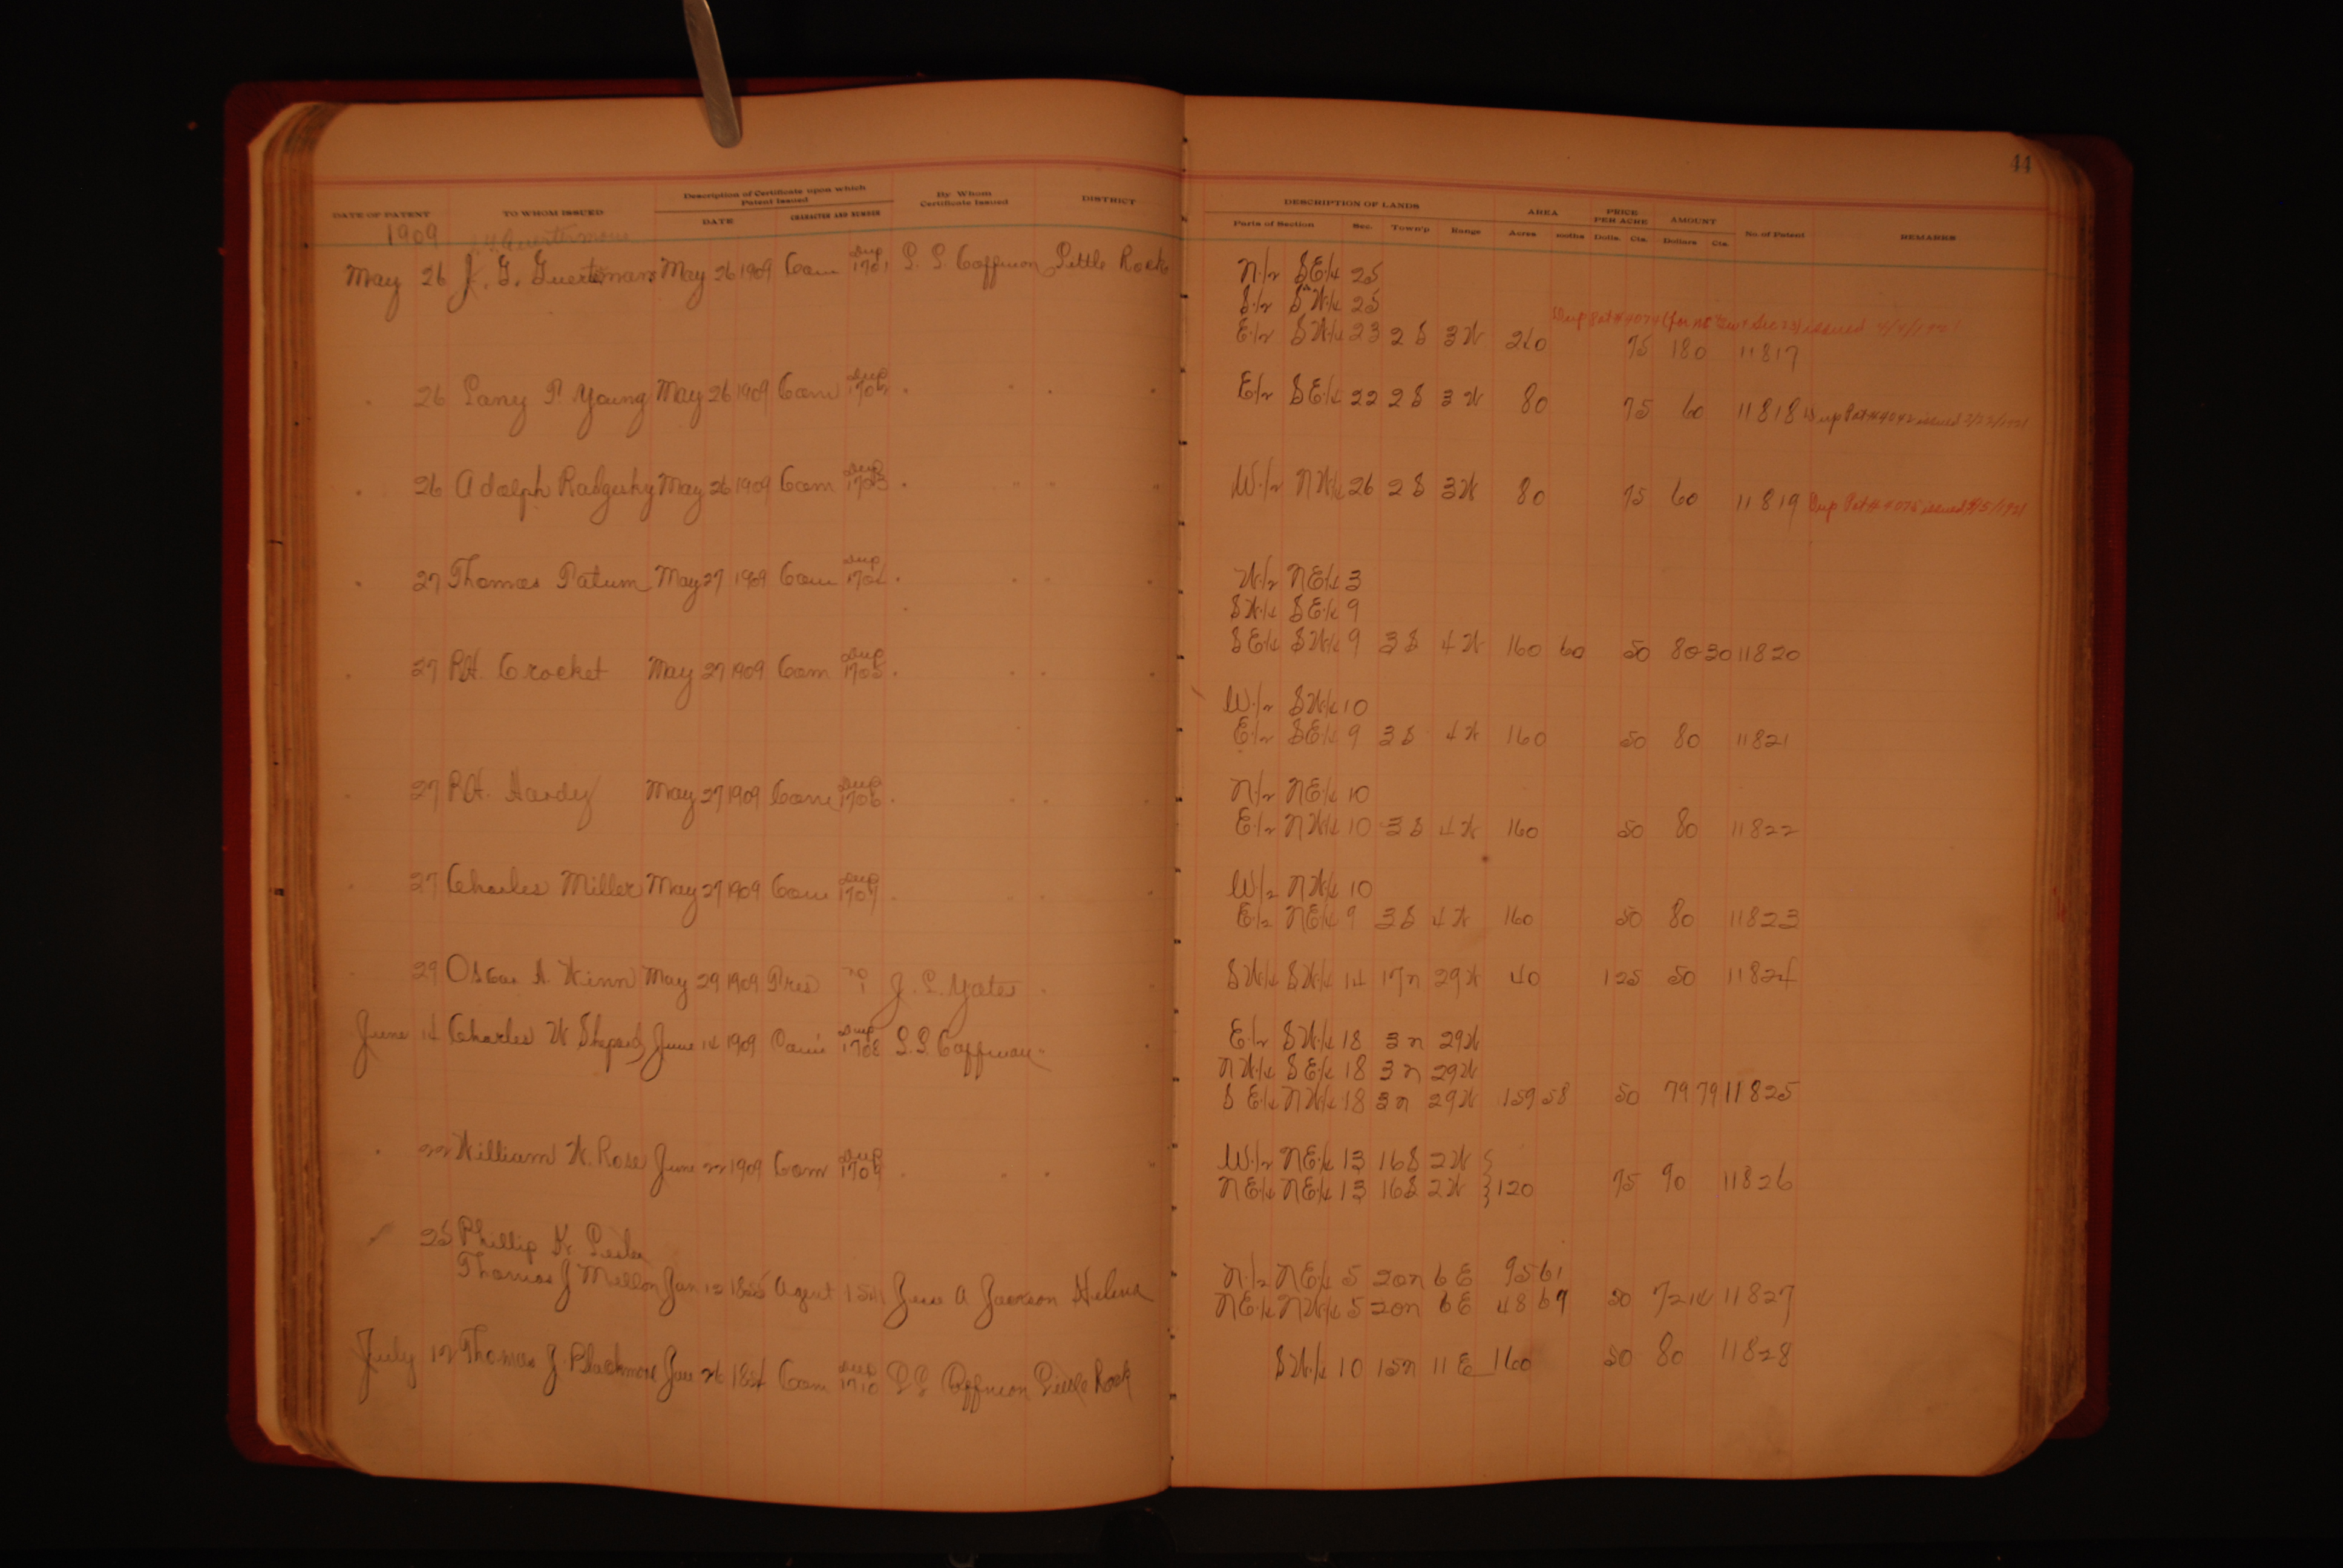 44
DATE OF PATENT TO WHOM ISSUED Description of Certificate upon which Patent Issued DATE CHARACTER AND NUMBER By Whom Certificate Issued DISTRICT DESCRIPTION OF LANDS Parts of Section Sec. Town'p Range AREA Acres PRICE PER ACRE Dolls. Cts. AMOUNT Dollars Cts. No. of Patent REMARKS
1909
May 26 J. G. May 26 1909 Com Dup 1701 L. L. Coffman Little Rock N 1/2 SE 1/4 25
S 1/2 SW 1/4 25
E 1/2 SW 1/4 23 2 S 3 W 240 75 180 11817
" 26 Lany P Young May 26 1909 Com Dup 1702 " " " " E 1/2 SE 1/4 22 2 S 3 W 80 75 60 11818 Dup Pat # 4042 issued
" 26 Adolph May 26 1909 Com Dup 1703 " " " " W 1/2 NW 1/4 26 2 S 3 W 80 75 60 11819 Dup Pat # 4075 issued
" 27 Thomas Tatum May 27 1909 Com Dup 1704 " " " " W 1/2 NE 1/4 3
SW 1/4 SE 1/4 9
SE 1/4 SW 1/4 9 3 S 4 W 160 60 50 80 30 11820
" 27 R.H. Crocket May 27 1909 Com Dup 1705 " " " " W 1/2 SW 1/4 10
E 1/2 SE 1/4 9 3 S 4 W 160 50 80 11821
" 27 R.H. Hardy May 27 1909 Com Dup 1706 " " " " N 1/2 NE 1/4 10
E 1/2 NW 1/4 10 3 S 4 W 160 50 80 11822
" 27 Charles Miller May 27 1909 Com Dup 1707 " " " " W 1/2 NW 1/4 10
E 1/2 NE 1/4 9 3 S 4 W 160 50 80 11823
" 29 Oscar A. Winn May 29 1909 Pres no 1 J. L. Yates " " SW 1/4 SW 1/4 14 17 N 29 W 40 1 25 50 11824
June 14 Charles W June 14 1909 Com Dup 1708 L. L. Coffman " " E 1/2 SW 1/4 18 3 N 29 W
NW 1/4 SE 1/4 18 3 N 29 W
SE 1/4 NW 1/4 18 3 N 29 W 159 58 50 79 79 11825
" 22 William W. Rose June 22 1909 Com Dup 1709 " " " " W 1/2 NE 1/4 13 16 S 2 W
NE 1/4 NE 1/4 13 16 S 2 W 120 75 90 11826
" 25 Phillip K.
Thomas J Jan 12 Agent Jesse A Jackson Helena N 1/2 NE 1/4 5 20 N 6 E 95 61
NE 1/4 NW 1/4 5 20 N 6 E 48 67 50 72 14 11827
July 12 Thomas J. Blackmore Jan 26 Com Dup 1710 L L Coffman Little Rock SW 1/4 10 15 N 11 E 160 50 80 11828